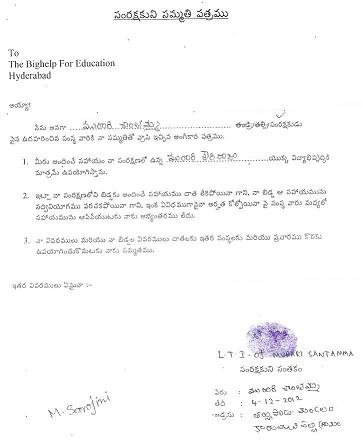 సంరక్షకుని సమ్మతి పత్రము
To
The Bighelp For Education
Hyderabad
అయ్యా!
నేను అనగా ముంగారి శాంతమ్మ తండ్రి/తల్లి/సంరక్షకుడు
పైన ఉదహరించిన సంస్థ వారికి నా సమ్మతితో వ్రాసి ఇచ్చిన అంగీకార పత్రము.
1. మీరు అందించే సహాయం నా సంరక్షణలో ఉన్న యొక్క విద్యాభివృద్ధికి
మాత్రమే ఉపయోగిస్తాను.
2. ఇట్లా నా సంరక్షణలోని బిడ్డకు అందించే సహాయము దాత లేకపోయినా గాని, నా బిడ్డ ఆ సహాయమును
సద్వినియోగము పరచకపోయినా గాని, ఇంక ఏవిధముగానైనా అర్హత కోల్పోయినా పై సంస్థ వారు మధ్యలో
సహాయమును ఆపివేయుటకు నాకు అభ్యంతరము లేదు.
3. నా వివరములు మరియు నా బిడ్డల వివరములు దాతలకు ఇతర సంస్థలకు మరియు ప్రచారము కొరకు
ఉపయోగించుకొనుటకు నాకు సమ్మతము.
ఇతర వివరములు ఏమైనా :-
L.T.I. of MUNGARI SANTAMMA
సంరక్షకుని సంతకం
పేరు : ముంగారి శాంతమ్మ
తేది : 4-12-2012
అడ్రసు :
M. Sarojini